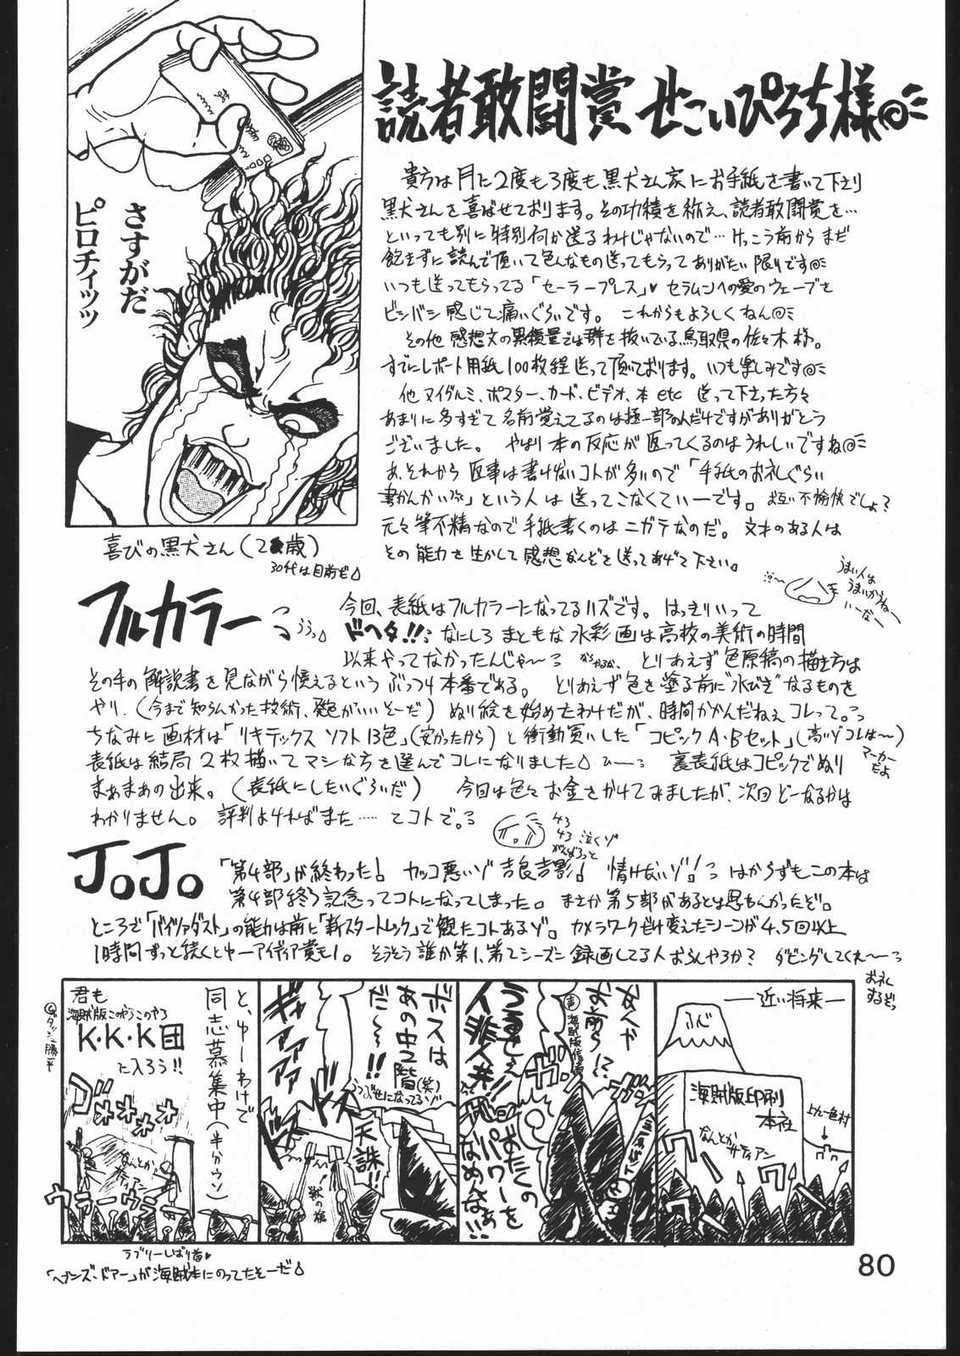 読者敢闘賞 せこいぴろち様
貴方は月に2度も3度も黒犬さん家にお手紙を書いて下さり
黒犬さんを喜ばせております。その功績を称え、読者敢闘賞を…
といっても別に特別何か送るわけじゃないので…けっこう前からまだ
飽きずに読んで頂いて色んなもの送ってもらってありがたい限りです
いつも送ってもらってる「セーラープレス」♥ セラムンへの愛のウェーブを
ビンバシ感じて痛いぐらいです。これからもよろしくねん
その他感想文の 量では群を抜いている鳥取県の佐々木様。
すでにレポート用紙100枚程送って頂いております。いつも楽しみです
他ヌイグルミ、ポスター、カード、ビデオ、本etc 送って下さった方々
あまりに多すぎて名前覚えてるのは極一部なんだけですがありがとう
ございました。やはり本の反応が返ってくるのはうれしいですね
あ、それから返事は書けないコトが多いので「手紙のお礼ぐらい
書かんかい」という人は送ってこなくていーです。お互い不愉快でしょ?
元々筆不精なので手紙書くのはニガテなのだ。文才のある人は
その能力を生かして感想なんぞを送ってあげて下さい。
さすがだ
ピロチィッッ
喜びの黒犬さん(2 歳)
30代は目前だ
うまい人は
うまいからねー
いーなー
フルカラー
今回、表紙はフルカラーになってるハズです。はっきりいって
ドヘタ!! なにしろまともな水彩画は高校の美術の時間
以来やってなかったんじゃ〜 とりあえず色原稿の描き方は
その手の解説書を見ながら憶えるというぶっつけ本番である。とりあえず色を塗る前に"水びき"なるものを
やり、(今まで知らんかった技術、発色がいいそーだ)ぬり絵を始めたわけだが、時間かかんだねぇコレって。
ちなみに画材は「リキテックス ソフト13色」(安かったから)と衝動買いした「コピックA・Bセット」(高いゾコレは〜)
マーカーだよ
表紙は結局2枚描いてマシな方を選んでコレになりました 裏表紙はコピックでぬり
まぁまぁの出来。(表紙にしたいぐらいだ) 今回は色々お金をかけてみましたが、次回どーなるかは
わかりません。評判よければまた……てコトで。
JoJo
「第4部」が終わった! カッコ悪いゾ吉良吉影! 情けないゾ! はからずもこの本は
第4部終了記念ってコトになってしまった。まさか第5部があるとは思わんかったぞ。
ところで「バイツァダスト」の能力は前に「新スタートレック」で観たコトあるゾ。カメラワークだけ変えたシーンが4,5回以上
1時間ずっと続くとゆーアイディア賞もん。そうそう誰か第1、第2シーズン録画してる人おらんやろか? ダビングしてくれ〜
お礼
するぞっ
―近い将来―
ふじ
海賊版印刷
本社
なんとか
サティアン
ワー
なんや
お前ら!?
海賊版信者
うるせぇ
人非人共!!
おたくの
パワーを
なめなよぉ!!
ボスは
あの中2階(笑)
だ〜!!
天誅!!
獣の槍
ギャアアアア
と、ゆーわけで
同志募集中(半分ウソ)
君も
海賊版このやろうこのやろ
K・K・K団
に入ろう!!
ゴオオオオ
なんとか
サティアン
ウラーウラー
ラブリーしばり首♥
「ヘブンズ・ドアー」が海賊本にのってたそーだ
80